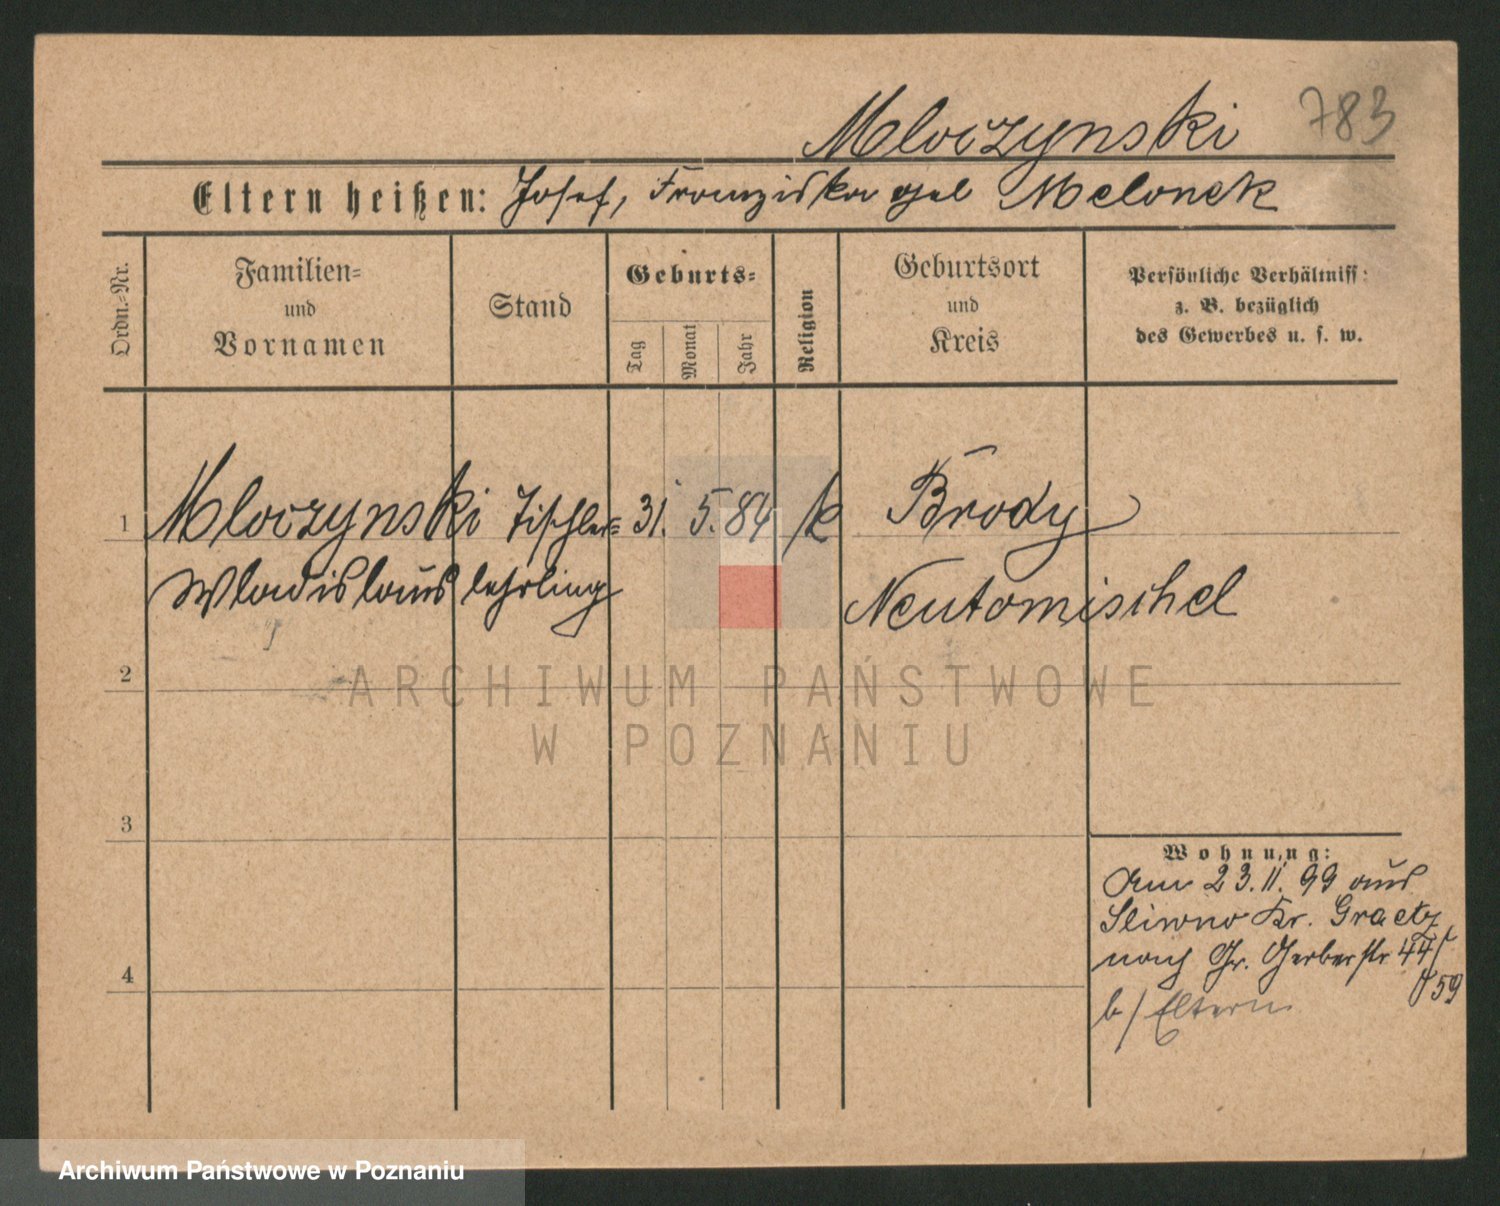 Mloczynski 783
Eltern heißen: Josef, Franziska geb Melonek
Ordn.-Nr.
Familien-
und
Vornamen
Stand
Geburts-
Tag
Monat
Jahr
Religion
Geburtsort
und
Kreis
Persönliche Verhältniss:
z. B. bezüglich
des Gewerbes u. s. w.
1 Mloczynski Tischler- 31. 5. 84 k Brody
Wladislaus lehrling Neutomischel
2
ARCHIWUM PAŃSTWOWE
W POZNANIU
3
Wohnung:
Am 23.11.99 aus
Sliwno Kr. Graetz
nach Gr. Gerberstr 44/
59
b/ Eltern
4
Archiwum Państwowe w Poznaniu